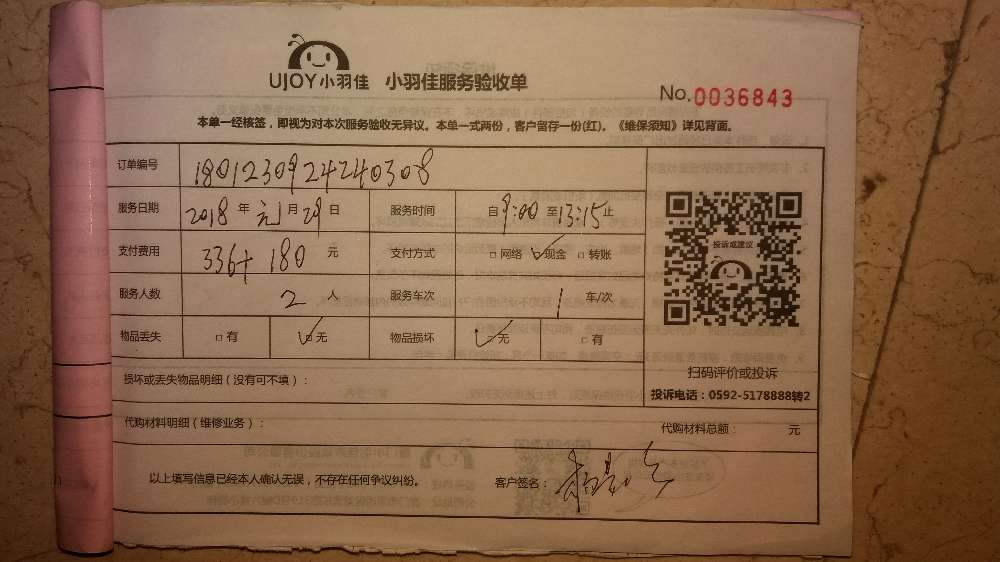 UJOY小羽佳 小羽佳服务验收单
No.0036843
本单一经核签，即视为对本次服务验收无异议。本单一式两份，客户留存一份(红)。《维保须知》详见背面。
订单编号 18012309242403​08
服务日期 2018 年 元 月 29 日 服务时间 自 9:00 至 13:15 止
支付费用 336+180 元 支付方式 □网络 ☑现金 □转账
服务人数 2 人 服务车次 1 车/次
物品丢失 □有 ☑无 物品损坏 ☑无 □有
投诉或建议
扫码评价或投诉
投诉电话：0592-5178888转2
损坏或丢失物品明细（没有可不填）：
代购材料明细（维修业务）： 代购材料总额： 元
以上填写信息已经本人确认无误，不存在任何争议纠纷。 客户签名：